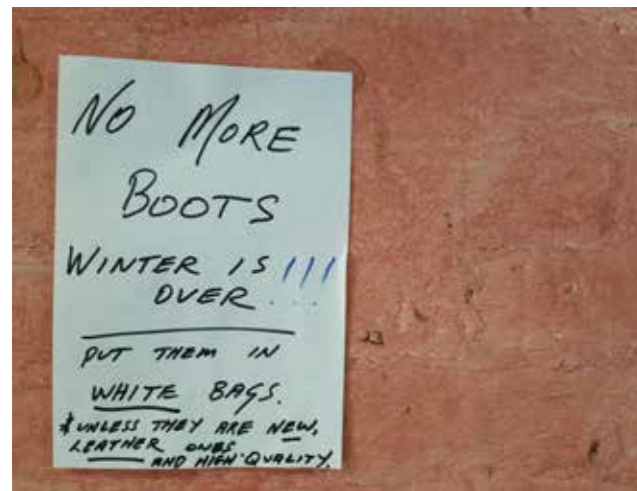 NO MORE
BOOTS
WINTER IS !!!
OVER
PUT THEM IN
WHITE BAGS.
* UNLESS THEY ARE NEW,
LEATHER ONES
AND HIGH QUALITY.